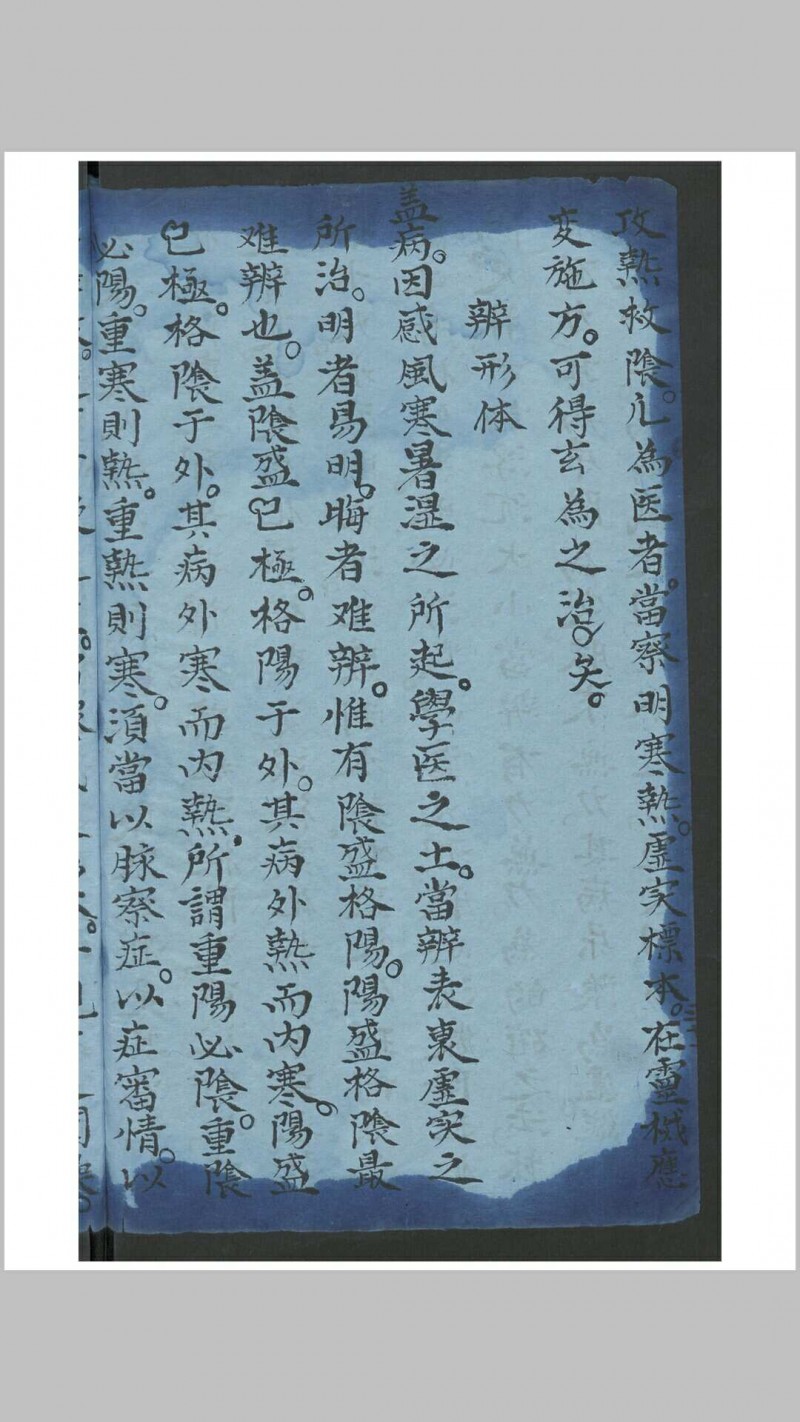 攻熱救陰。凢為医者。當察明寒熱。虛实標本。在靈機應
变施方。可得玄為之治。矣。
辨形体
盖病。因感風寒暑湿之所起。學医之士。當辨表裏虛实之
所治。明者易明。晦者难辨。惟有陰盛格陽。陽盛格陰最
难辨也。盖陰盛已極。格陽于外。其病外熱而内寒。陽盛
已極。格陰于外。其病外寒而内熱，所謂重陽必陰。重陰
必陽。重寒則熱。重熱則寒。須當以脉察症。以症審情。以